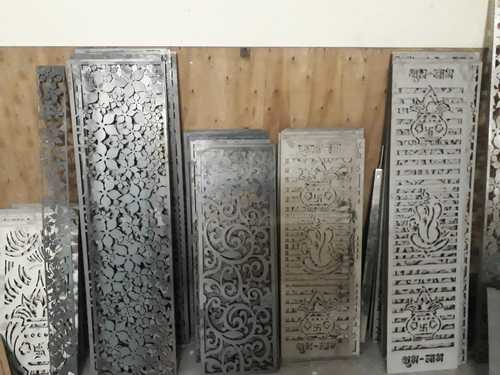 शुभ-लाभ
शुभ-लाभ
शुभ-लाभ
शुभ-लाभ